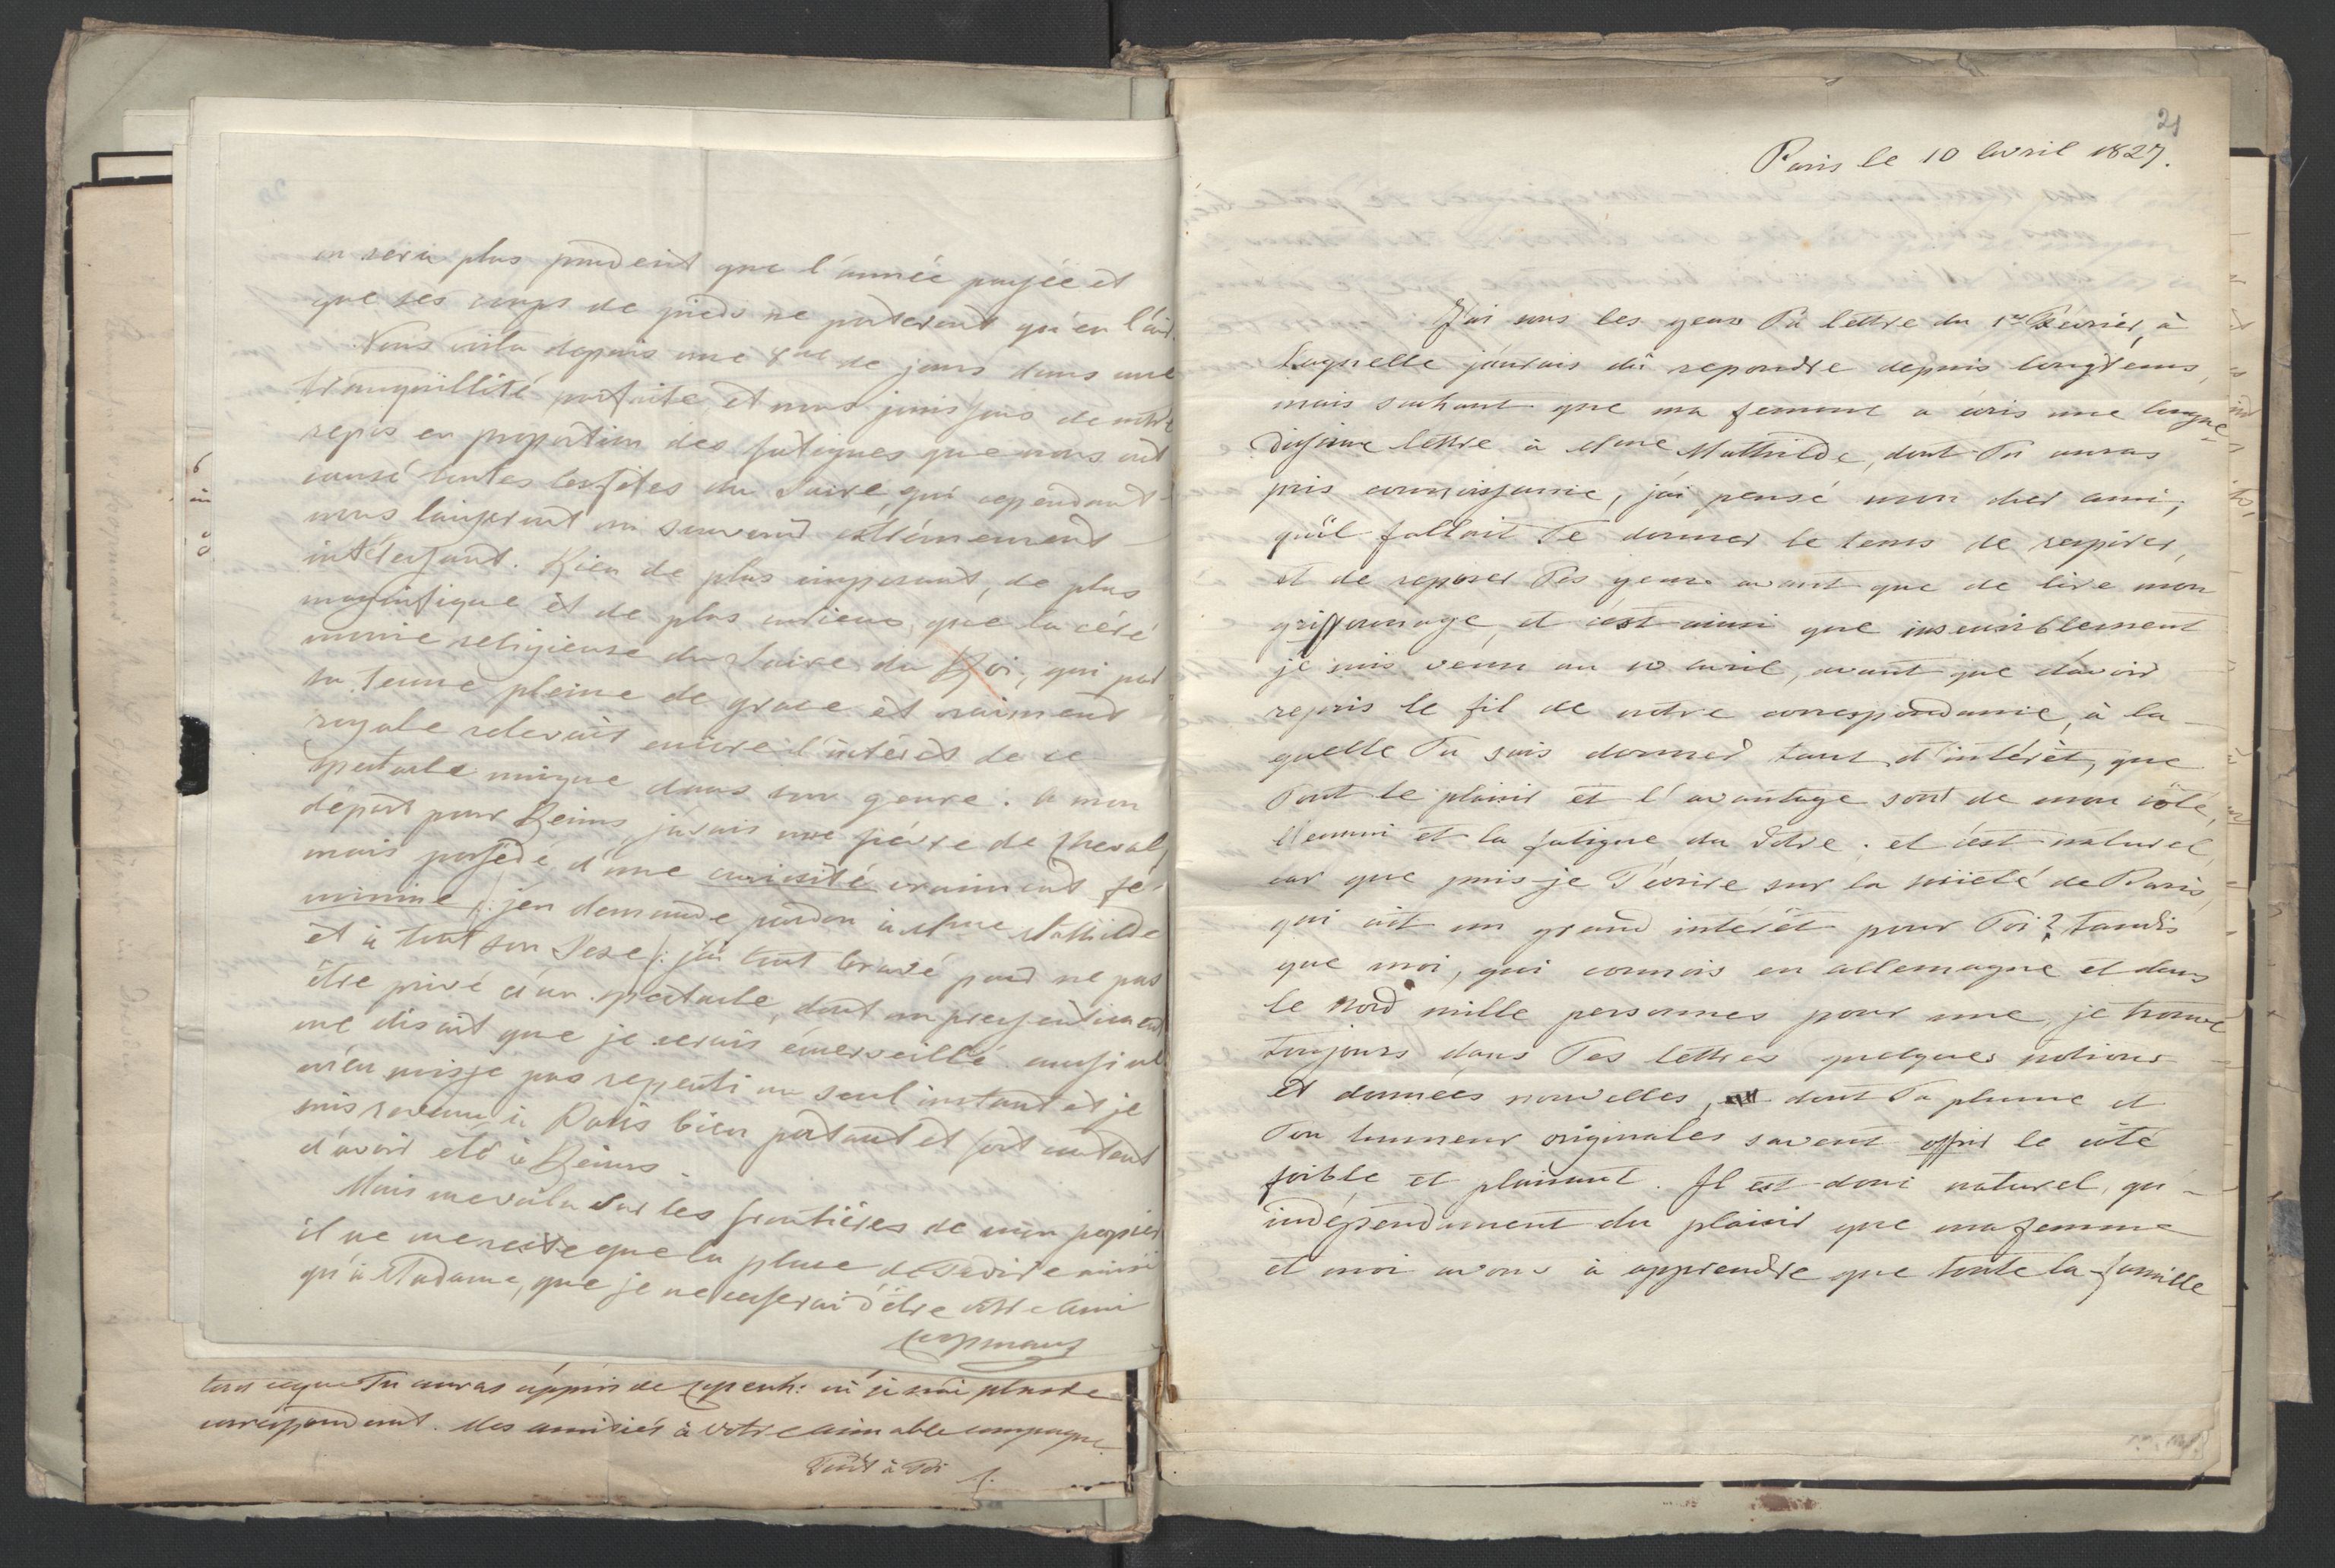 on sera plus prudent que l'année passée et
que ses coups de pieds ne porteront qu'en l'air.
Nous voila depuis une 8ne de jours dans une
tranquillité parfaite, et nous jouissons de notre
repos en proportion des fatigues que nous ont
causé toutes les fêtes du Sacre, qui cependant
nous laisseront un souvenir extrèmement
intéressant. Rien de plus imposant, de plus
magnifique et de plus curieux, que la céré
monie religieuse du Sacre du Roi, qui par
sa tenue pleine de grace et vraiment
royale relevait encore l'intérêt de ce
spectacle unique dans son genre. A mon
départ pour Reims, j'avais une fièvre de cheval,
mais possedé d'une curiosité vraiment fé-
minine /: j'en demande pardon à Mme Mathilde
et à tout son Sexe :/ j'ai tout bravé pour ne pas
être privé d'un spectacle, dont un pressentiment
me disait que je serais émerveillé. aussi ne
m'en suis je pas repenti un seul instant et je
suis revenu à Paris bien portant et fort content
d'avoir été à Reims.
Mais me voila sur les frontières de mon papier
il ne me reste que la place de Te dire ainsi
qu'à Madame, que je ne cesserai d'être votre ami
Koopmans
tout ce que Tu auras appris de où je n'ai plus de
correspondant. Mes amitiés à votre aimable compagne
Tout à Toi
21
Paris le 10 Avril 1827.
J'ai sous les yeux Ta lettre du 1er Février, à
laquelle j'aurais dû repondre depuis longtems,
mais sachant que ma femme a écris une longue
lettre à Mme Mathilde, dont Tu auras
pris connoissance, j'ai pensé mon cher ami,
qu'il falloit Te donner le tems de respirer,
et de reposer Tes yeux avant que de lire mon
griffonnage, et c'est ainsi que insensiblement
je suis venu au 10 avril, avant que d'avoir
repris le fil de notre correspondance, à la-
quelle Tu sais donner tant d'intérêt, que
Tout le plaisir et l'avantage sont de mon côté,
l'ennui et la fatigue du Votre. et c'est naturel,
car que puis-je T'écrire sur la société de Paris,
qui ait un grand interêt pour Toi? tandis
que moi, qui connois en allemagne et dans
le Nord mille personnes pour une, je trouve
toujours dans Tes lettres quelques notions
et données nouvelles, dont Ta plume et
Ton humeur originales savent offrir le côté
foible et plaisant. Il est donc naturel, qu'-
indépendament du plaisir que ma femme
et moi avons à apprendre que toute la famille